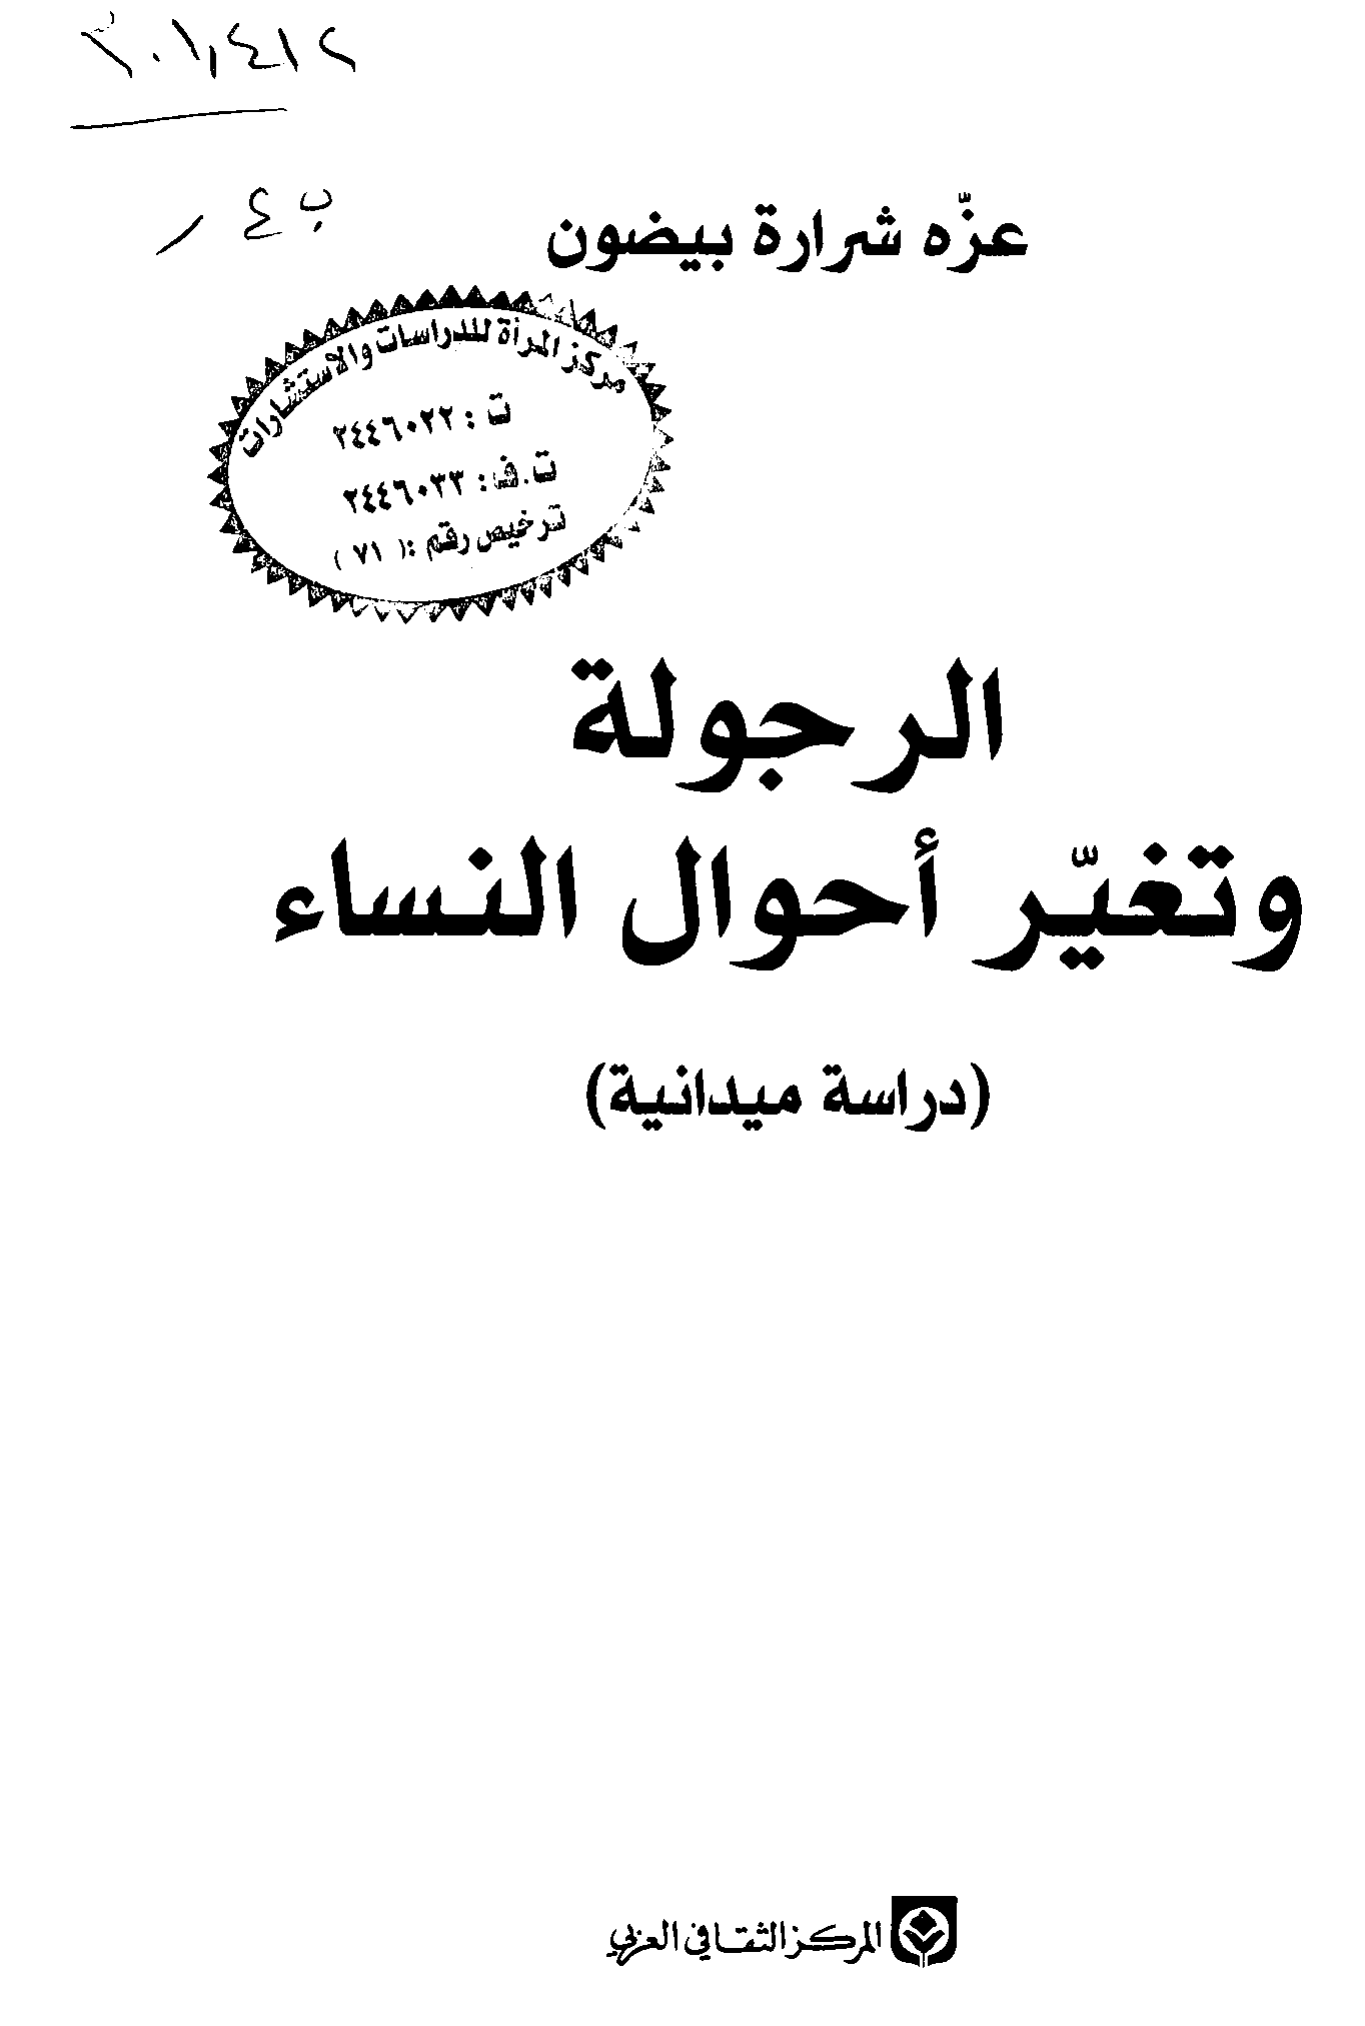 ٣٠١,٤١٢
ب ع ر
عزّه شرارة بيضون
مركز المرأة للدراسات والاستشارات
ت : ٢٤٤٦٠٢٢
ت.ف: ٢٤٤٦٠٣٣
ترخيص رقم :( ٧١ )
الرجولة
وتغيّر أحوال النساء
(دراسة ميدانية)
المركز الثقافي العربي